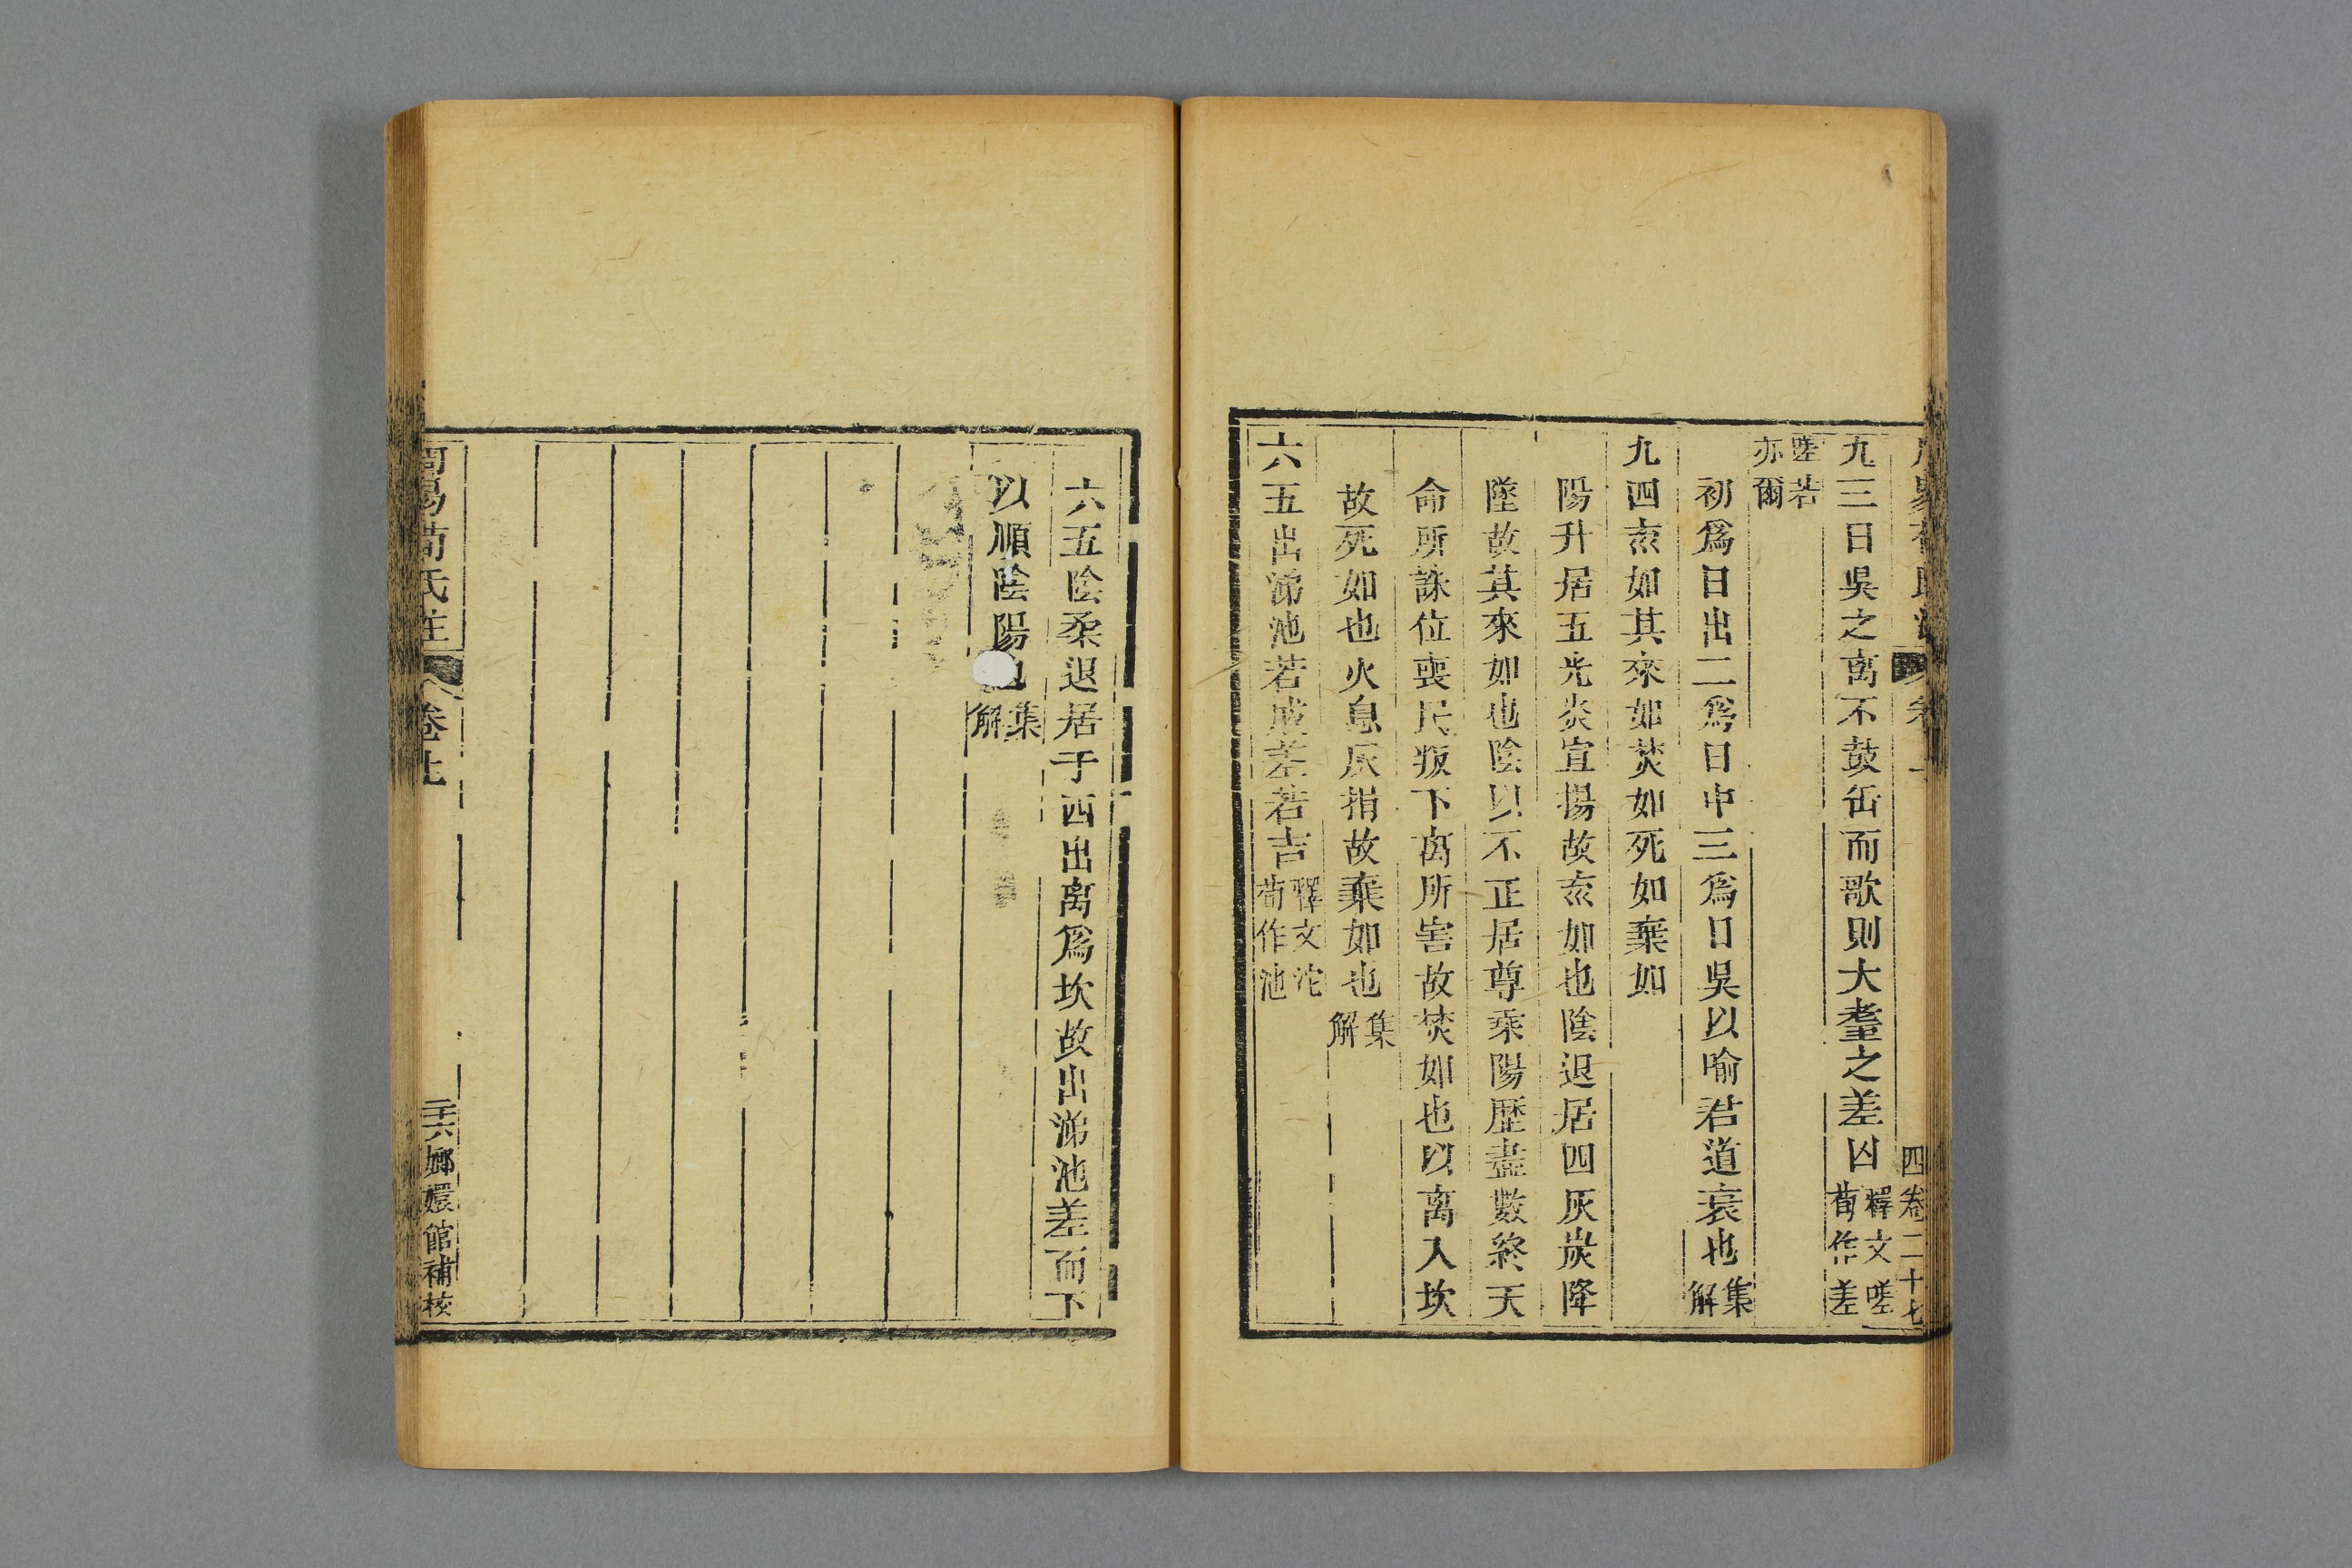 九三日昃之离不鼓缶而歌則大耋之差凶釋文嗟荀作差
嗟若亦爾
初爲日出二爲日中三爲日昃以喻君道衰也集解
九四㐬如其來如焚如死如棄如
陽升居五光炎宣揚故㐬如也陰退居四灰炭降
墜故其來如也陰以不正居尊乘陽歷盡數終天
命所誅位喪民叛下离所害故焚如也以离入坎
故死如也火息灰捐故棄如也集解
六五出涕池若戚差若吉釋文沱荀作池
四卷二十七
六五陰柔退居于四出离爲坎故出涕池差而下
以順陰陽也集解
周易荀氏注 卷上 二十六 嫏嬛館補校